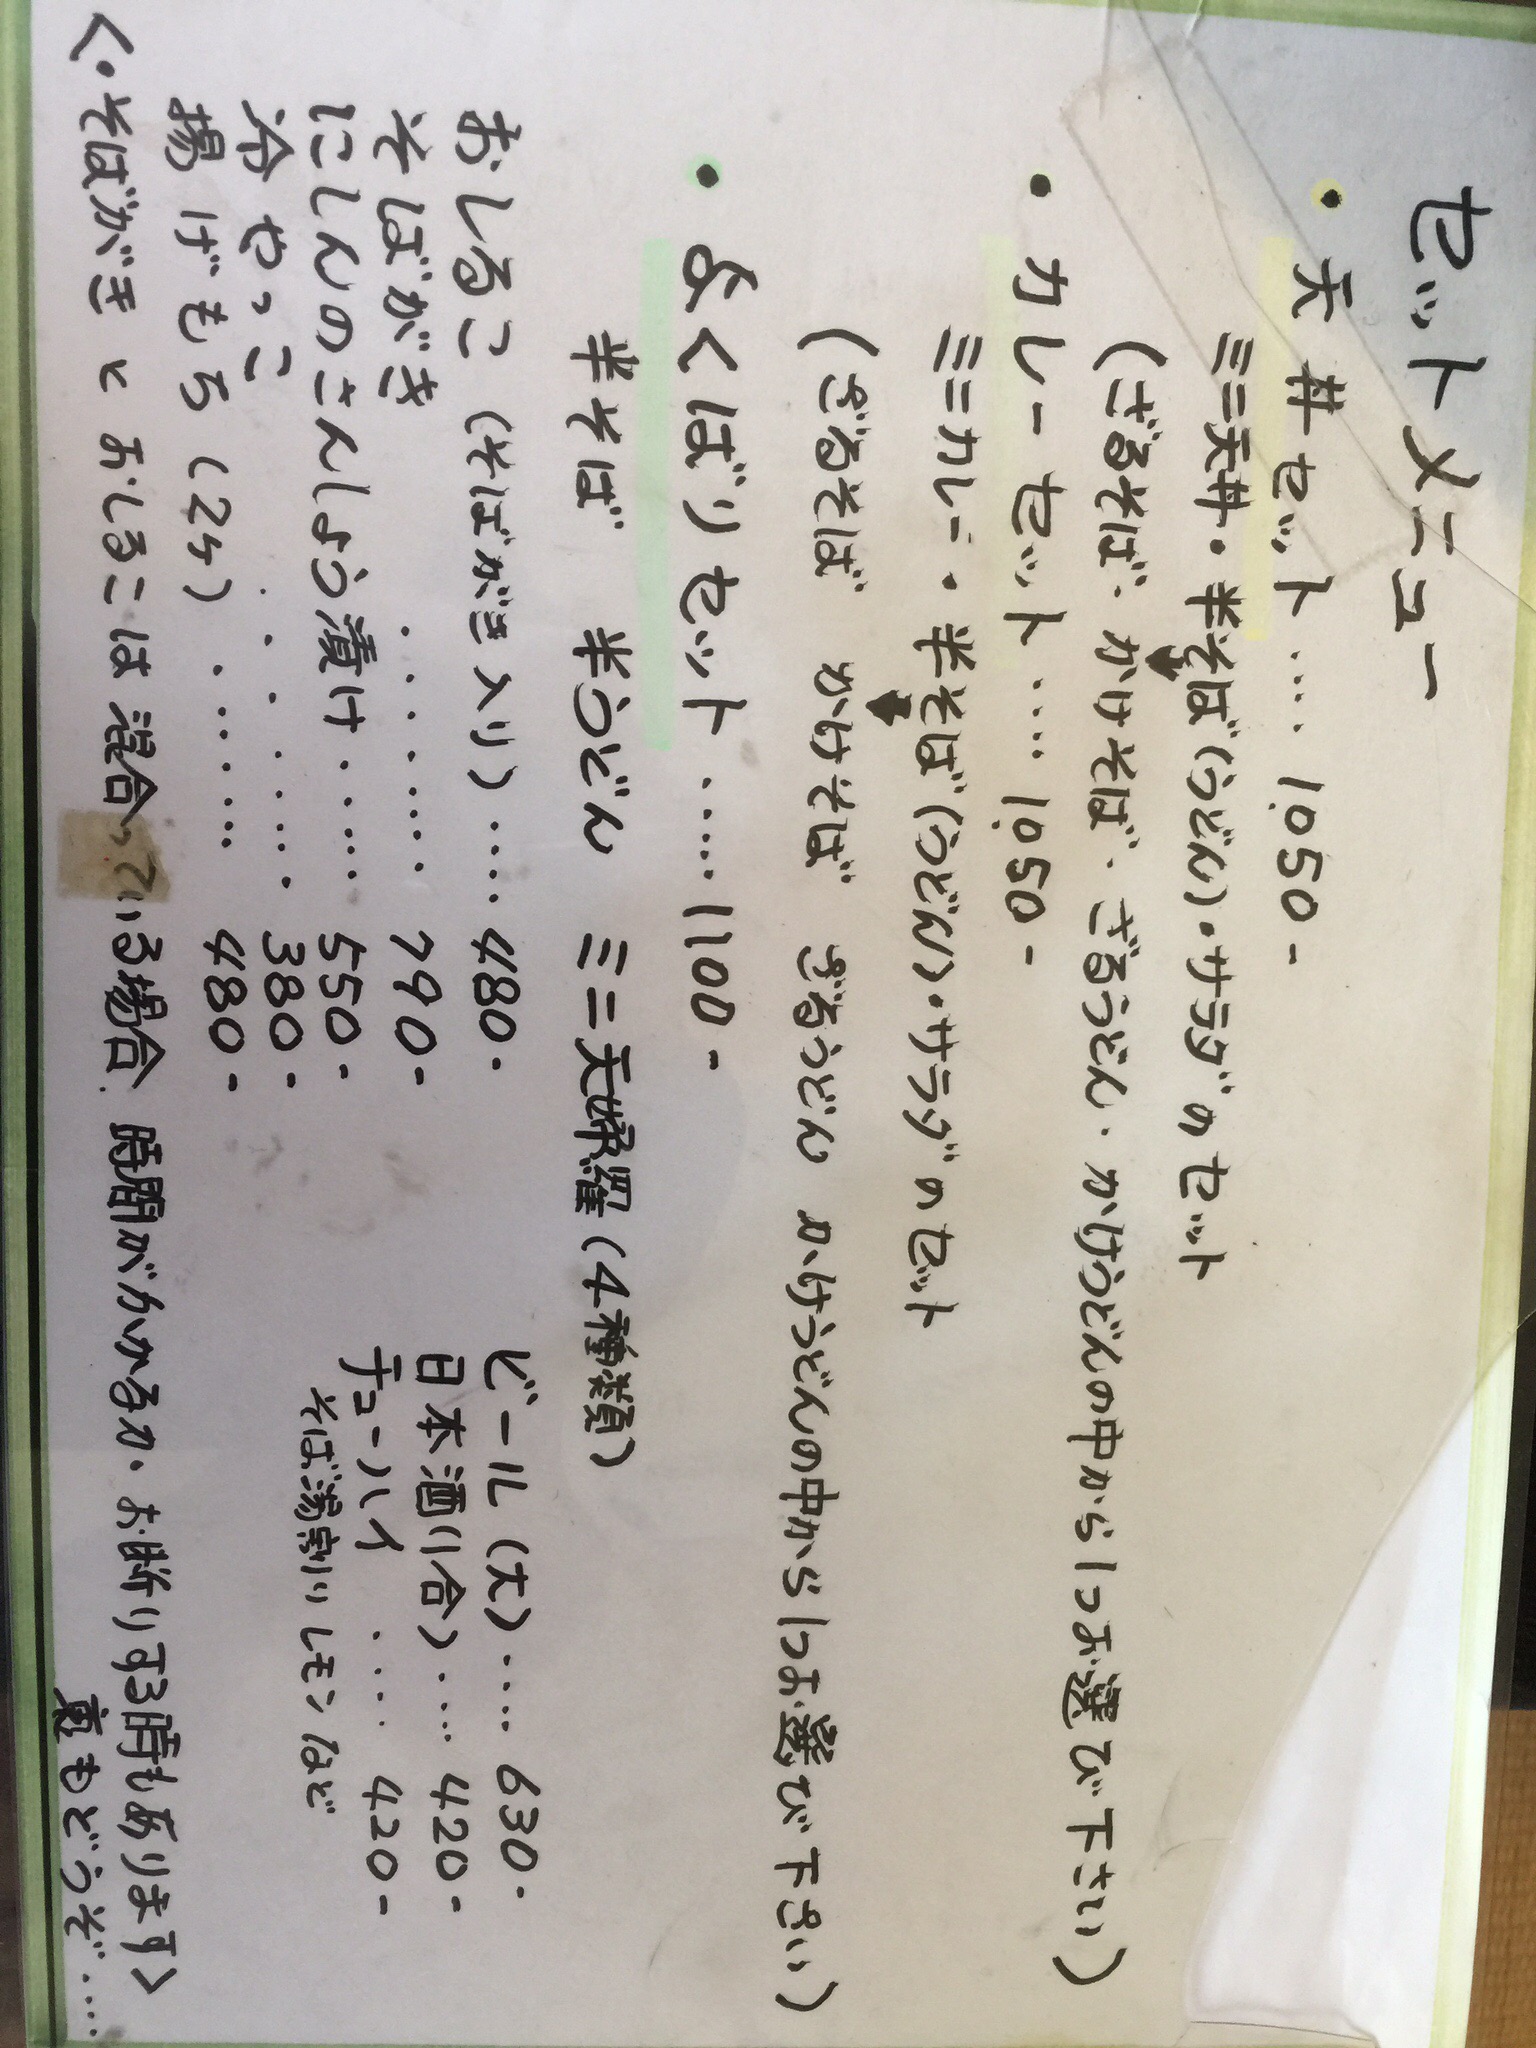 セットメニュー
・天丼セット‥‥1,050-
ミニ天丼・半そば(うどん)・サラダのセット
(ざるそば、かけそば、ざるうどん、かけうどんの中から1つお選び下さい)
・カレーセット‥‥1,050-
ミニカレー・半そば(うどん)・サラダのセット
(ざるそば かけそば ざるうどん かけうどんの中から1つお選び下さい)
・よくばりセット‥‥1100-
半そば 半うどん ミニ天婦羅(4種類)
おしるこ (そばがき入り)‥‥480-
そばがき ‥‥‥‥790-
にしんのさんしょう漬け‥‥550-
冷やっこ ‥‥‥‥380-
揚げもち(2ケ) ‥‥‥‥480-
ビール(大)‥‥630-
日本酒(1合)‥‥420-
チューハイ ‥‥420-
そば湯割り レモンなど
<・そばがきとおしるこは混合っている場合、時間がかかるか、お断りする時もあります>
裏もどうぞ‥‥